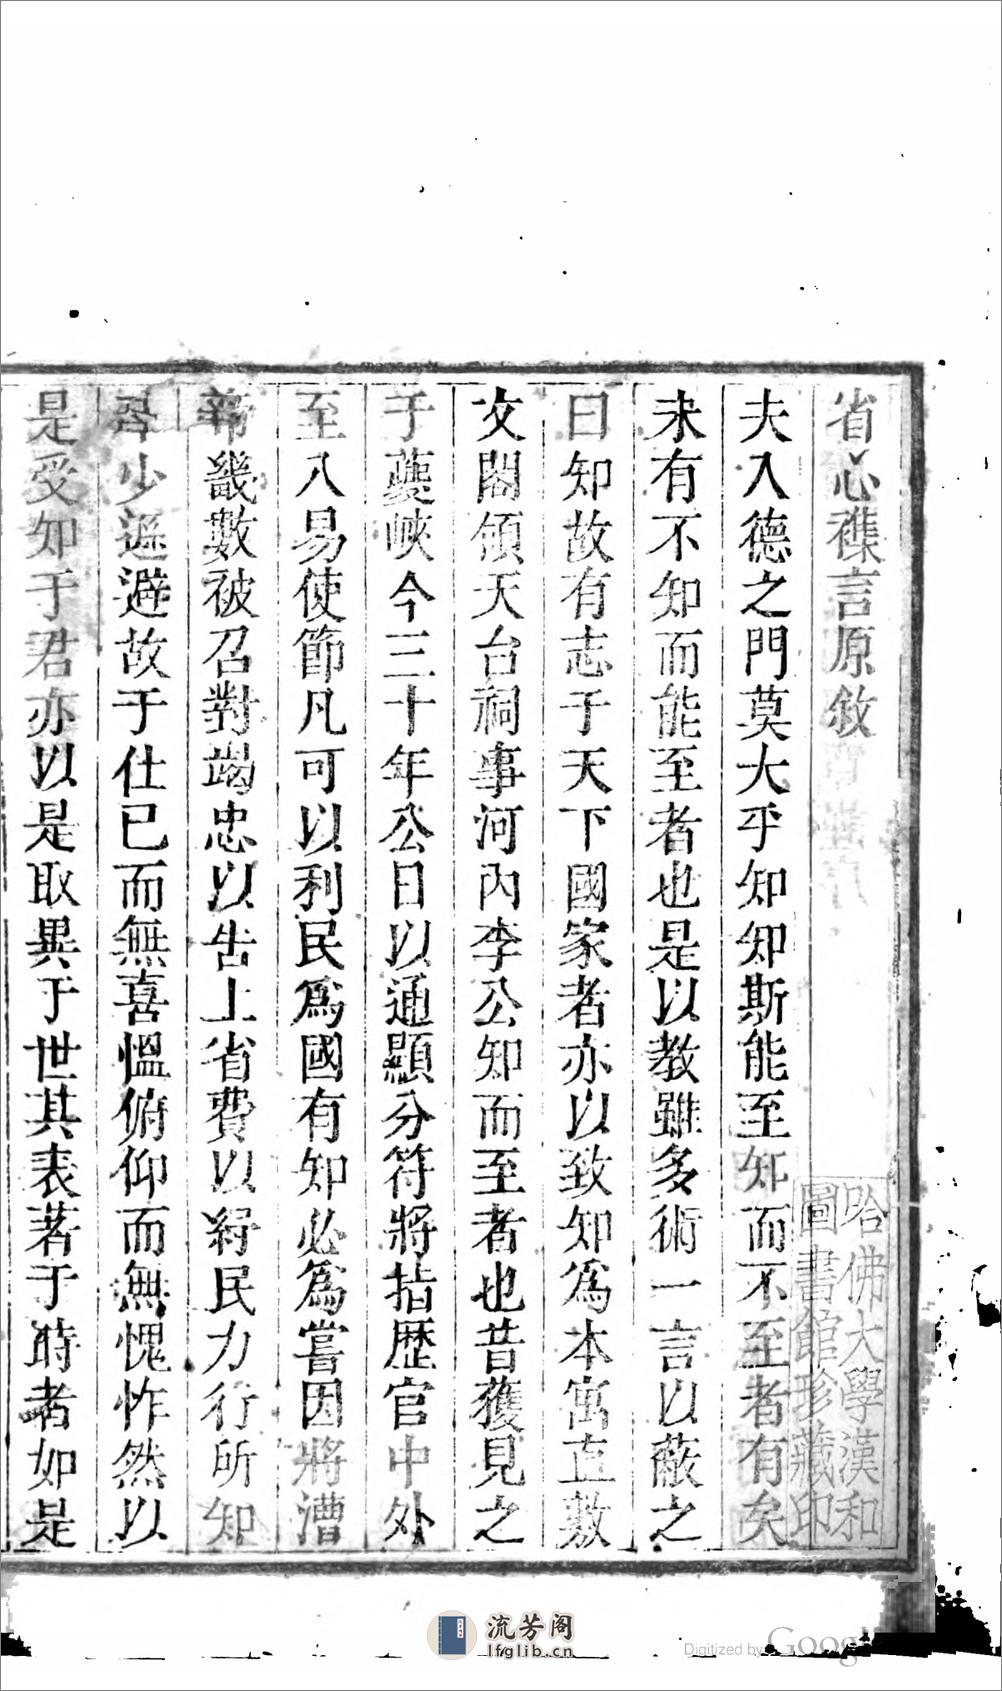 省心襍言原敘
夫入德之門莫大乎知知斯能至知而不至者有矣
未有不知而能至者也是以教雖多術一言以蔽之
曰知故有志于天下國家者亦以致知為本寓直敷
文閣領天台祠事河內李公知而至者也昔獲見之
于夔峽今三十年公日以通顯分符將指歷官中外
至八易使節凡可以利民爲國有知必爲嘗因將漕
畿數被召對竭忠以告上省費以紓民力行所知
少遜避故于仕已而無喜慍俯仰而無愧怍然以
是受知于君亦以是取異于世其表著于時者如是
哈佛大學漢和
圖書館珍藏印
流芳阁
lfglib.cn
Digitized by Google